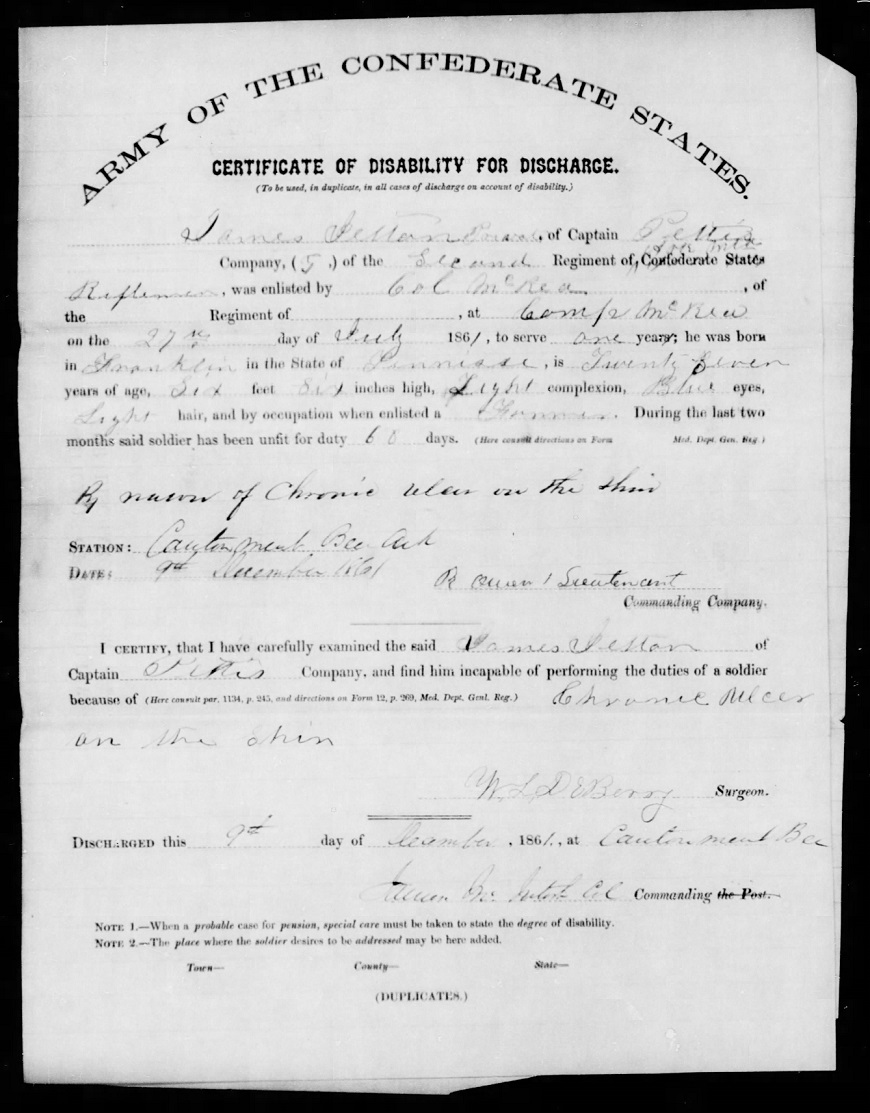 ARMY OF THE CONFEDERATE STATES.
CERTIFICATE OF DISABILITY FOR DISCHARGE.
(To be used, in duplicate, in all cases of discharge on account of disability.)
James Jettan, of Captain Pettis
Company, ( ) of the Second Regiment of, Confederate States
Riflemen, was enlisted by Col McRea, of
the Regiment of , at Camp McRea
on the 27th day of July 1861, to serve one years; he was born
in Franklin in the State of , is Twenty Seven
years of age, Six feet Six inches high, Light complexion, Blue eyes,
Light hair, and by occupation when enlisted a . During the last two
months said soldier has been unfit for duty 60 days. (Here consult directions on Form Med. Dept. Gen. Reg.)
By reason of Chronic ulcer on the shin
STATION: Cantonment Bee Ark
DATE: 9th December 1861
Lieutenant
Commanding Company.
I CERTIFY, that I have carefully examined the said James Jettan of
Captain Pettis Company, and find him incapable of performing the duties of a soldier
because of (Here consult par. 1134, p. 245, and directions on Form 12, p. 269, Med. Dept. Genl. Reg.) Chronic Ulcer
on the shin
W. L. DeBerry Surgeon.
DISCHARGED this 9th day of December, 1861, at Cantonment Bee
Col Commanding the Post.
NOTE 1.—When a probable case for pension, special care must be taken to state the degree of disability.
NOTE 2.—The place where the soldier desires to be addressed may be here added.
Town— County— State—
(DUPLICATES.)